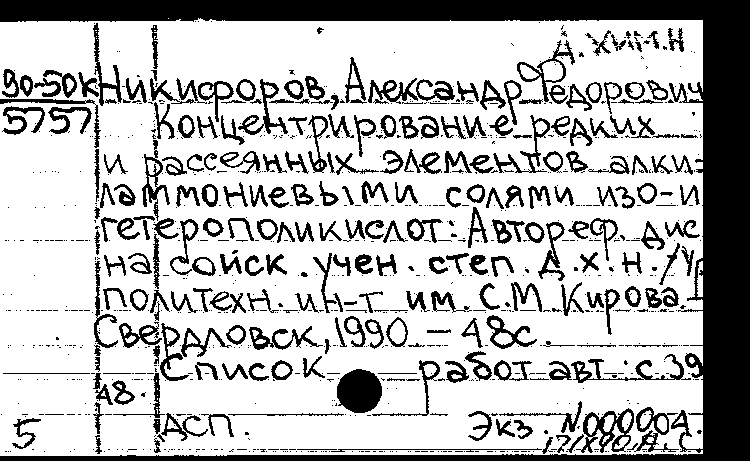 Д. ХИМ.Н
90-50К Никифоров, Александр Федорович
5757 Концентрирование редких
и рассеянных элементов алки-
ламмониевыми солями изо-и
гетерополикислот: Автореф. дис
на соиск. учен. степ. д.х.н. /Ур
политехн. ин-т им. С.М. Кирова. -
Свердловск, 1990 - 48с.
Список работ авт.: с.39
48.
5 АСП. Экз. N000004.